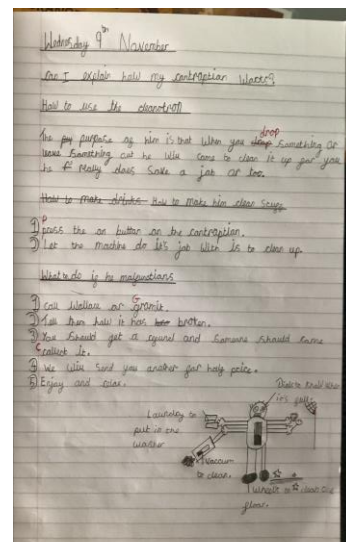 Wednesday 9th November
Can I explain how my contraption works?
How to use the cleanotron
The purpose of him is that when you drop something or
leave something out he will come to clean it up for you
he really does save a job or too.
How to make drinks How to make him clean stuff
1) Press the on button on the contraption.
2) Let the machine do it's job with is to clean up.
What to do if he malfunctions
1) Call Wallace or Gromit.
2) Tell them how it has broken.
3) You should get a and someone should come
collect it.
4) We will send you another for half price.
5) Enjoy and relax.
when
it's full.
to
put in the
washer
Vacuum
to clean.
Wheels to clean the
floor.